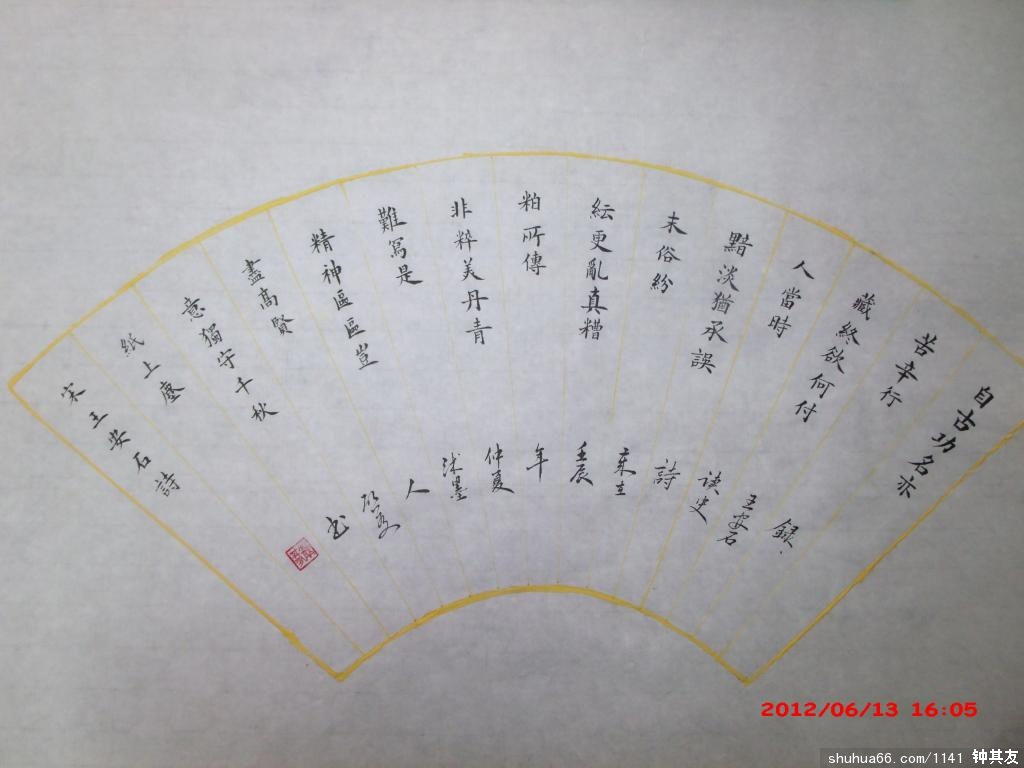 自古功名亦
苦辛行
藏終欲何付
人當時
黯淡猶承誤
末俗紛
紜更亂真糟
粕所傳
非粹美丹青
難寫是
精神區區豈
盡高賢
意獨守千秋
紙上塵
宋王安石詩
録
王安石
读史
詩
壬辰
年
仲夏
墨
人
书
2012/06/13 16:05
shuhua66.com/1141 钟其友